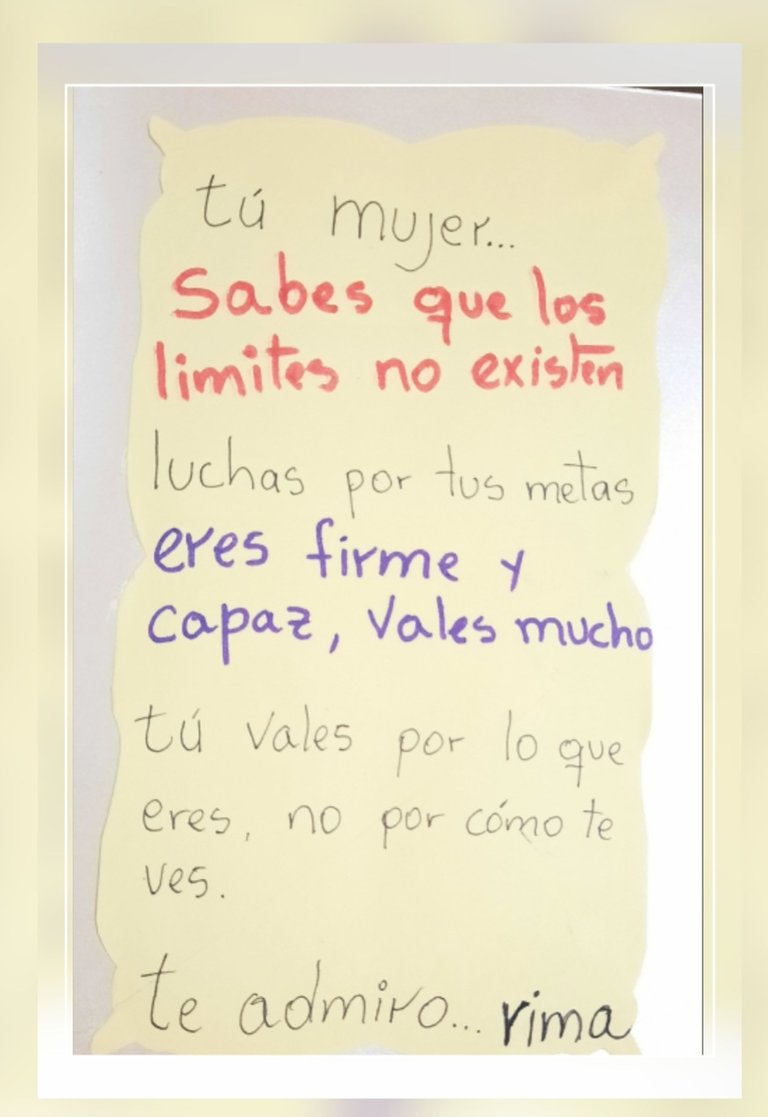 tú mujer...
Sabes que los
limites no existen
luchas por tus metas
eres firme y
capaz, Vales mucho
tú vales por lo que
eres, no por cómo te
ves.
te admiro... rima